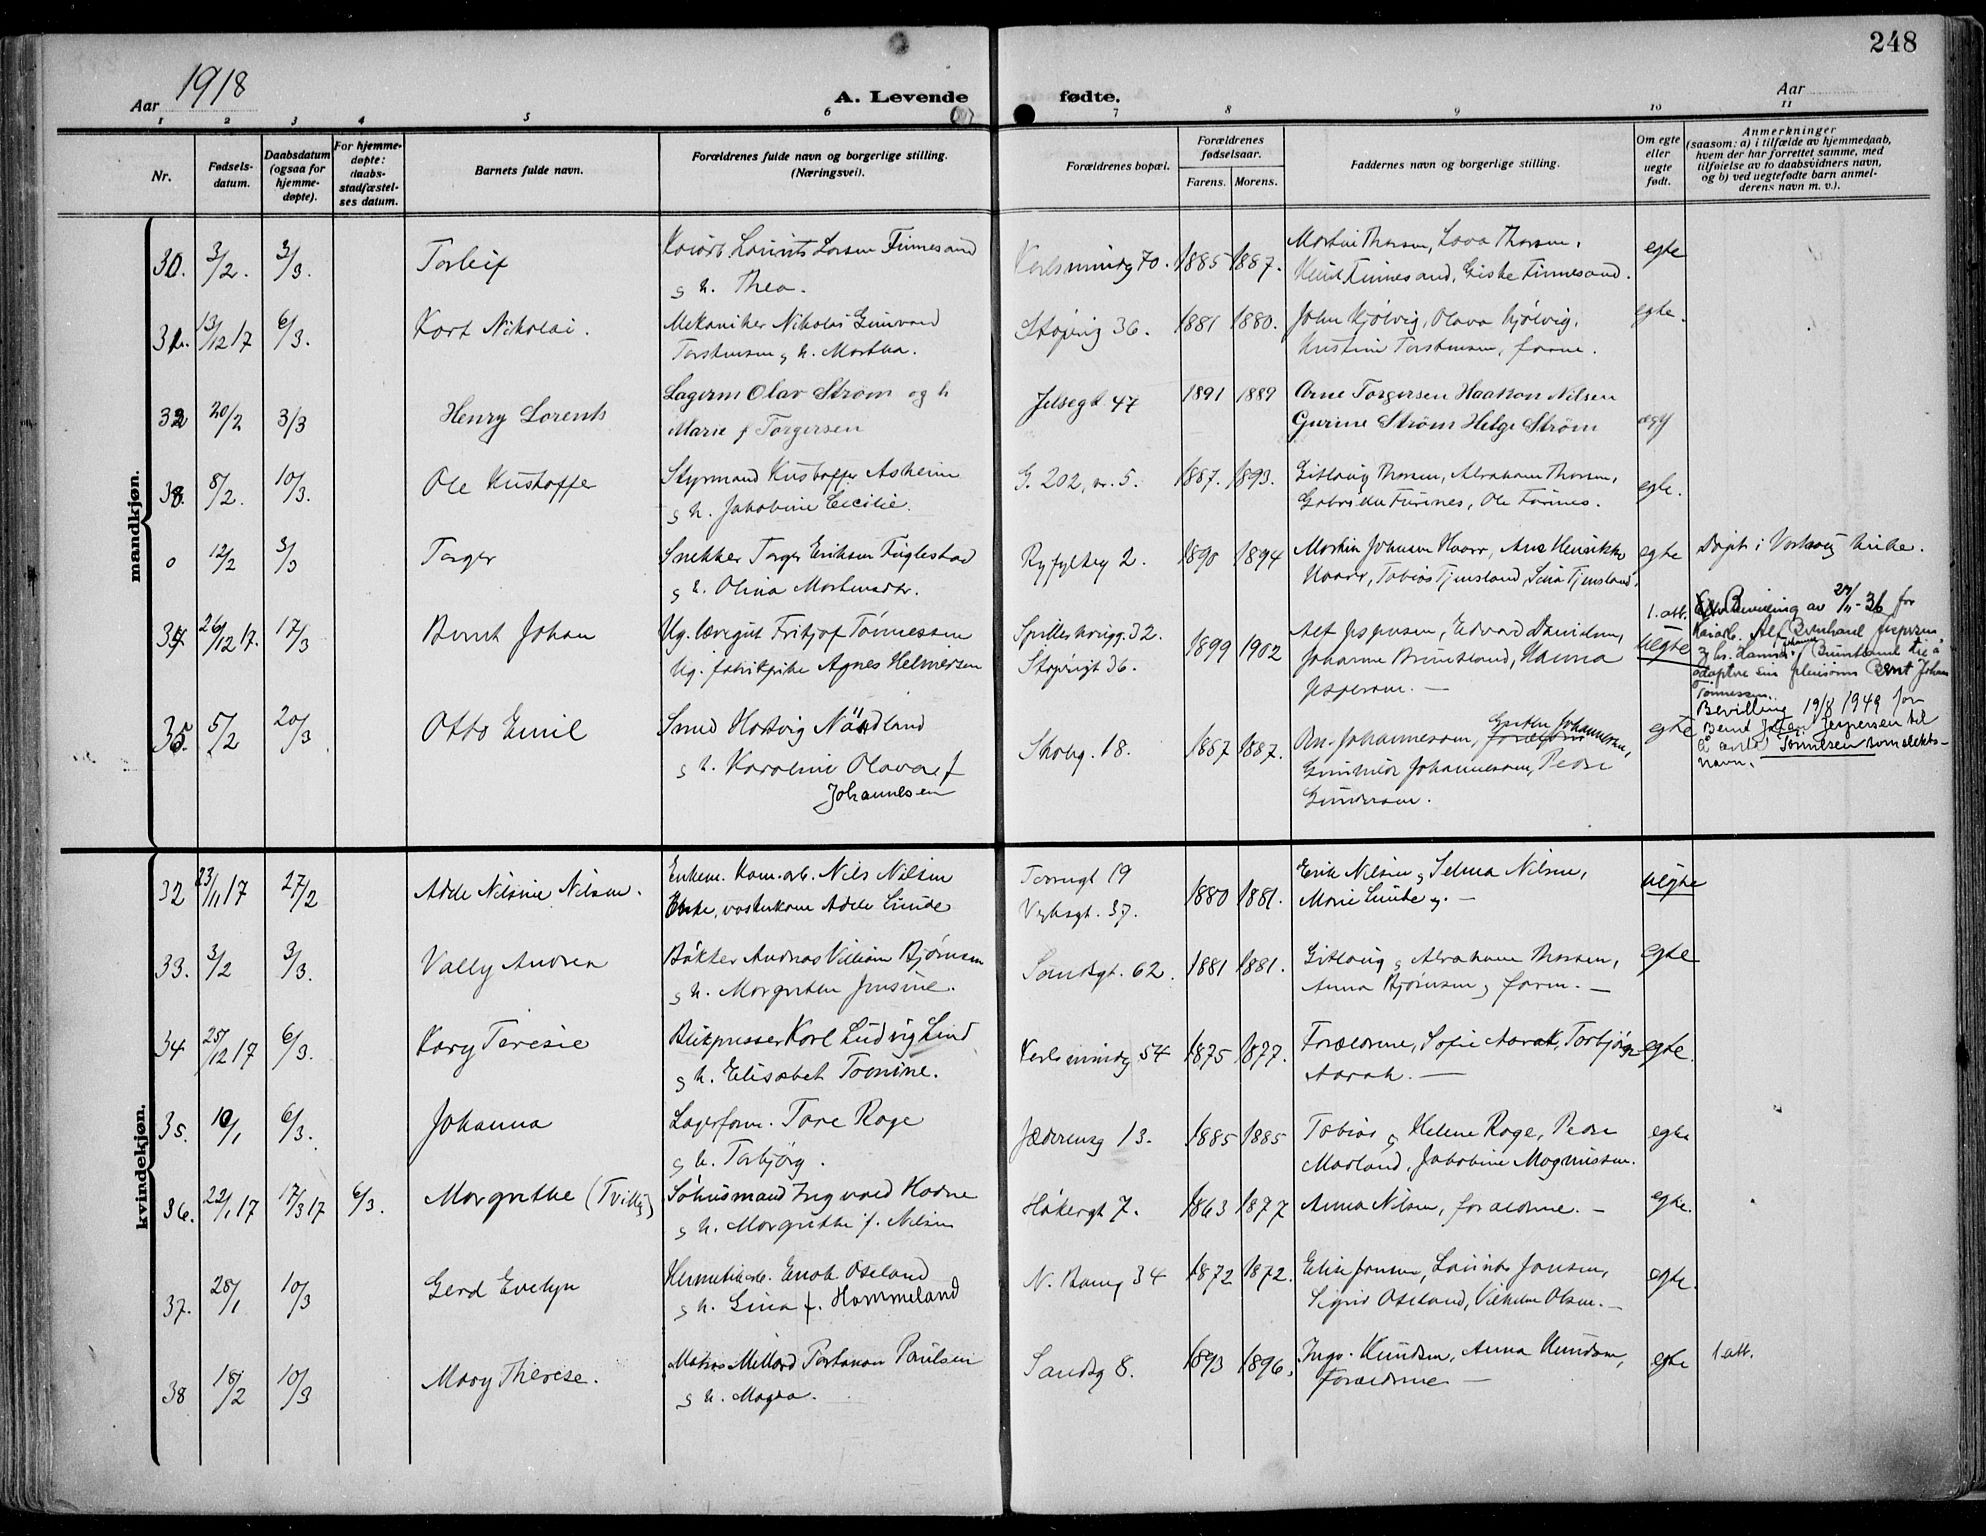 248
Aar 1918
A. Levende fødte.
Aar
1 2 3 4 5 6 7 8 9 10 11
Nr.
Fødsels-
datum.
Daabsdatum
(ogsaa for
hjemme-
døpte).
For hjemme-
døpte:
daabs-
stadfæstel-
ses datum.
Barnets fulde navn.
Forældrenes fulde navn og borgerlige stilling.
(Næringsvei).
Forældrenes bopæl.
Forældrenes
fødselsaar.
Farens. Morens.
Faddernes navn og stilling.
Om egte
eller
uegte
født.
Anmerkninger
(saasom: a) i tilfælde av hjemmedaab,
hvem der har forrettet samme, med
tilføielse av to daabsvidners navn,
og b) ved uegtefødte barn anmel-
derens navn m. v.).
mandkjøn.
30. 3/2. 3/3. Torleif
Laurits Larsen Finnesand
g h. Thea.
Verksmindg 70. 1885 1887.
Martin Thorsen, Lava Thorsen,
Knut Finnesand, Giske Finnesand.
egte
31. 13/12 17 6/3. Kort Nikolai.
Mekaniker Nikolai Gunvald
Torstensen g h. Martha.
Støperig 36. 1881 1880.
John Hjølvig, Olava Hjølvig,
Kristine Torstensen, farne.
egte.
32 20/2 3/3 Henry Lorents
Lagerm Olav Strøm og h
Marie f Torgersen
Jelsegt 47 1891 1889
Arne Torgersen Haakon Nilsen
Gurine Strøm Helge Strøm
33. 8/2. 10/3. Ole Kristoffe
Styrmand Kristoffer Asheim
g h. Jakobine Cecilie.
G. 202, nr. 5. 1887. 1893.
Gitlaug Thorsen, Abraham Thorsen,
Gabrielle Furenes, Ole Furenes.
egte.
0 12/2 3/3 Torger
Snekker Torger Eriksen Fuglestad
g h. Olina Mortensdtr.
Ryfylkeg 2. 1890 1894
Martin Johnsen Haarr, Ane Henrikke
Haarr, Tobias Tjensland, Lina Tjensland.
egte
Døpt i Varhaug kirke.
26/12 17. 17/3 Bernt Johan
Ug. læregut Fritjof Tønnessen
Ug. fabrikpike Agnes Helmersen
Spilderhaugg. 32.
Støperigt 36.
1899 1902
Alf Jespersen, Edvard Davidsen,
Johanne Bruntland, Hanna
Jespersen. —
1. att.
uegte
Bevilling av 27/11-36 for
Kaiarb. Alf Bernhard Jespersen
g hs. Hanna f Bruntland til å
adoptere sin pleiesønn Bernt Johan
Tønnessen.
Bevilling 19/8 1949 for
Bernt Johan Jespersen til
å anta Tønnesen som slekts-
navn.
35. 5/2 20/3 Otto Emil
Smed Hartvig Nordland
g h. Karoline Olava f
Johannesen
Skolig. 18. 1887 1887.
Johannessen, Johannessen,
Gunnhild Johannessen, Peder
Gundersen.
egte
kvindekjøn.
32 23/11 17 27/2 Adele Nilsine Nilsen.
Enkem. Kom.arb. Nils Nilsen
Enke, vaskekone Adele Lunde
Torvugt 19
37.
1880 1881.
Erik Nilsen g Selma Nilsen,
Marie Lunde g. —
uegte
33. 3/2 3/3. Vally Andrea
Bøkker Andreas William Bjørnsen
g h. Margrethe Jensine.
Sandsgt. 62. 1881 1881.
Gitlaug g Abraham Thorsen,
Anna Bjørnsen g farm. —
egte
34 25/12 17 6/3. Kary Teresie
Blikpresser Karl Ludvig Lind
g h. Elisabet Tomine.
Verksmindg 54 1875 1877.
Forældrene, Sofie Aarak, Torbjørg
Aarak. —
egte.
35. 10/1 6/3. Johanna
Lagerform. Tore Rage
g h. Torbjørg.
Jæderensg 13. 1885 1885
Tobias g Helene Rage, Peder
Marland, Jakobine Magnussen.
egte
36. 22/1 17 17/3 17 6/3. Margrethe (Tvilling)
Søkusmand Ingvald Hodne
g h. Margrethe f. Nilsen
Høkergt 7. 1863 1877
Anna Nilsen, forældrene. —
egte.
37. 28/1 10/3 Gerd Evelyn
Hermetikarb. Enok Oseland
g h. Gina f. Hammeland
N. Baneg 34 1872 1872.
Elise Jonsen, Laurits Jonsen,
Sigrid Oseland, Vilhelm Olsen. —
egte.
38 18/2 10/3 Mary Therese.
Matros Millard Portanan Paulsen
g h. Magda.
Sandsg 8. 1893 1896.
Ingv. Knudsen, Anna Knudsen,
Forældrene —
egte
1. att.